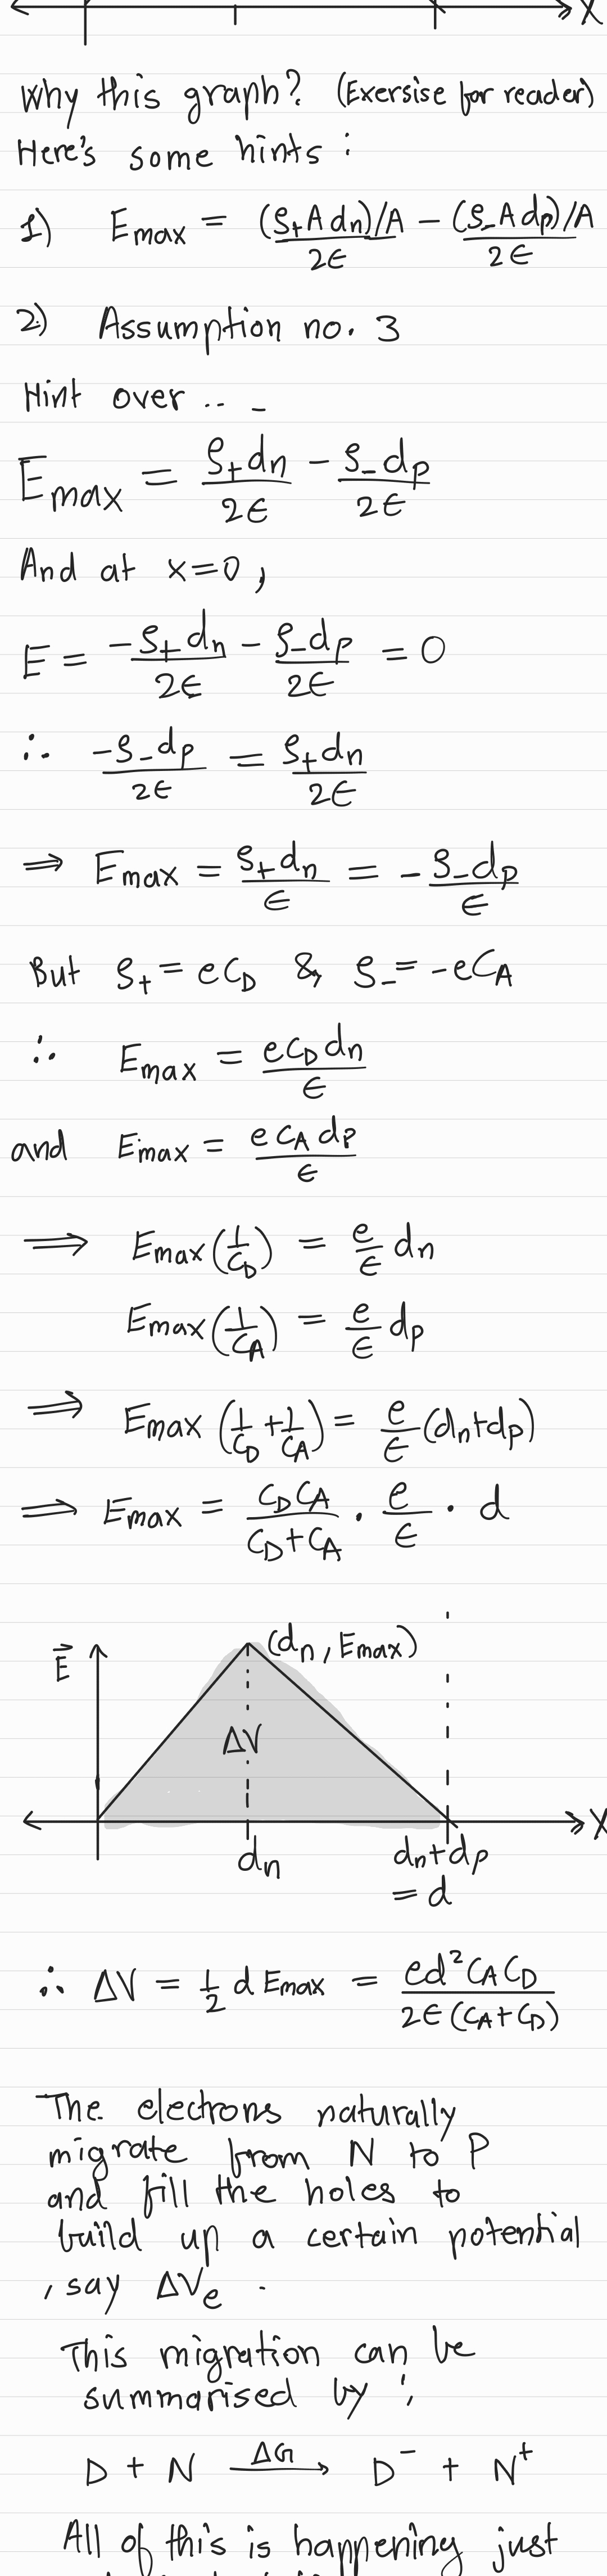 X
Why this graph? (Exersise for reader)
Here's some hints :
1) E_max = (ρ₊ A d_n)/A / 2ε − (ρ₋ A d_p)/A / 2ε
2) Assumption no. 3
Hint over .. _
E_max = ρ₊ d_n / 2ε − ρ₋ d_p / 2ε
And at x=0,
E = −ρ₊ d_n / 2ε − ρ₋ d_p / 2ε = 0
∴ −ρ₋ d_p / 2ε = ρ₊ d_n / 2ε
⇒ E_max = ρ₊ d_n / ε = − ρ₋ d_p / ε
But ρ₊ = eC_D & ρ₋ = −eC_A
∴ E_max = eC_D d_n / ε
and E_max = eC_A d_p / ε
⇒ E_max (1/C_D) = e/ε d_n
E_max (1/C_A) = e/ε d_p
⇒ E_max (1/C_D + 1/C_A) = e/ε (d_n+d_p)
⇒ E_max = C_D C_A / C_D + C_A · e/ε · d
E⃗
(d_n, E_max)
ΔV
X
d_n
d_n+d_p
= d
∴ ΔV = ½ d E_max = ed² C_A C_D / 2ε (C_A + C_D)
The electrons naturally
migrate from N to P
and fill the holes to
build up a certain potential
, say ΔV_e .
This migration can be
summarised by :
D + N —ΔG→ D⁻ + N⁺
All of this is happening just